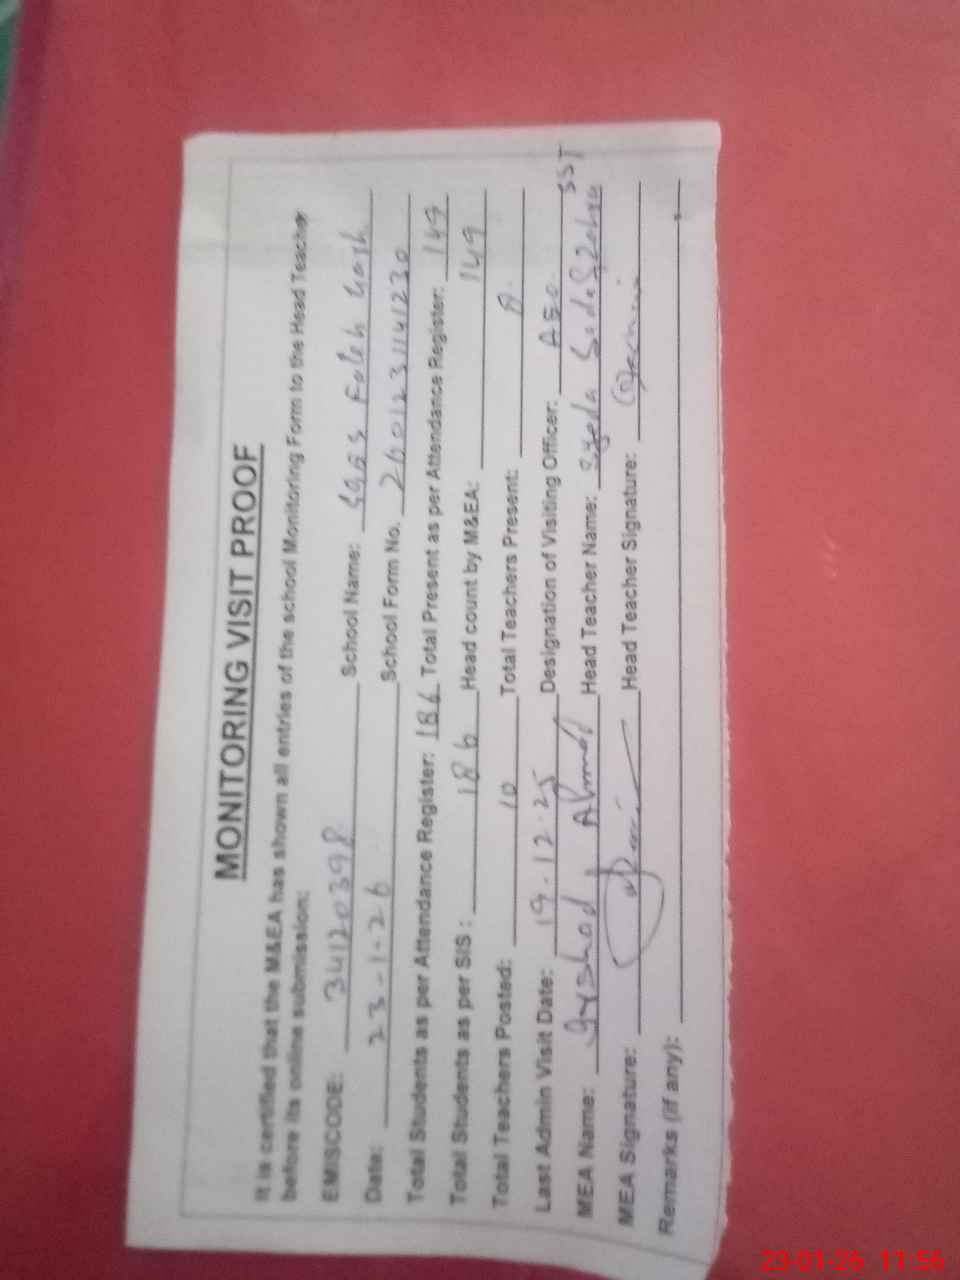 MONITORING VISIT PROOF
It is certified that the M&EA has shown all entries of the school Monitoring Form to the Head Teacher
before its online submission:
EMISCODE: 34120398 School Name:
Date: 23-1-26 School Form No. 2601231141230
Total Students as per Attendance Register: 186 Total Present as per Attendance Register: 149
Total Students as per SIS: 186 Head count by M&EA: 149
Total Teachers Posted: 10 Total Teachers Present:
Last Admin Visit Date: 19-12-25 Designation of Visiting Officer: AEO
MEA Name: Ahmad Head Teacher Name: Syeda SST
MEA Signature: Head Teacher Signature:
Remarks (if any):
23-01-26 11:56